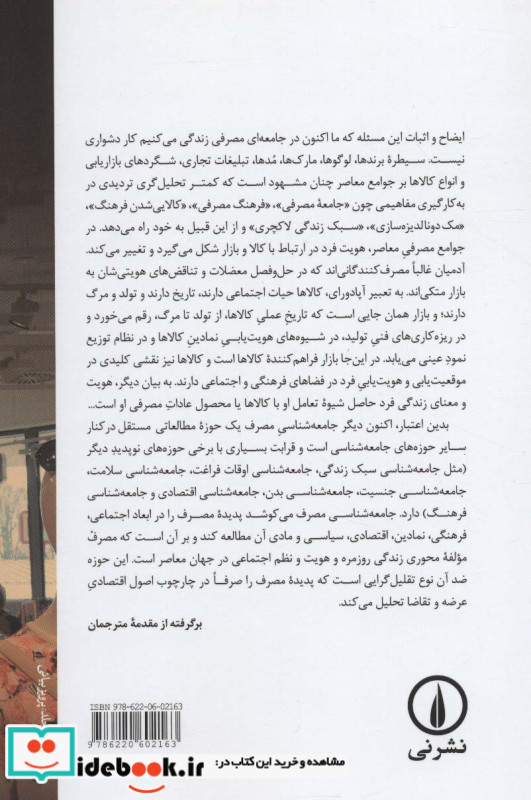 ایضاح و اثبات این مسئله که ما اکنون در جامعه‌ای مصرفی زندگی می‌کنیم کار دشواری
نیست. سیطرهٔ برندها، لوگوها، مارک‌ها، مُدها، تبلیغات تجاری، شگردهای بازاریابی
و انواع کالاها بر جوامع معاصر چنان مشهود است که کمتر تحلیل‌گری تردیدی در
به‌کارگیری مفاهیمی چون «جامعهٔ مصرفی»، «فرهنگ مصرفی»، «کالایی‌شدن فرهنگ»،
«مک‌دونالدیزه‌سازی»، «سبک زندگی لاکچری» و از این قبیل به خود راه می‌دهد. در
جوامع مصرفیِ معاصر، هویت فرد در ارتباط با کالا و بازار شکل می‌گیرد و تغییر می‌کند.
آدمیان غالباً مصرف‌کنندگانی‌اند که در حل‌وفصل معضلات و تناقض‌های هویتی‌شان به
بازار متکی‌اند. به تعبیر آپادورای، کالاها حیات اجتماعی دارند، تاریخ دارند و تولد و مرگ
دارند؛ و بازار همان جایی است که تاریخ عملیِ کالاها، از تولد تا مرگ، رقم می‌خورد و
در ریزه‌کاری‌های فنیِ تولید، در شیوه‌های هویت‌یابیِ نمادینِ کالاها و در نظام توزیع
نمود عینی می‌یابد. در این‌جا بازار فراهم‌کنندهٔ کالاها است و کالاها نیز نقشی کلیدی در
موقعیت‌یابی و هویت‌یابیِ فرد در فضاهای فرهنگی و اجتماعی دارند. به بیان دیگر، هویت
و معنای زندگی فرد حاصل شیوهٔ تعامل او با کالاها یا محصول عاداتِ مصرفی او است...
بدین اعتبار، اکنون دیگر جامعه‌شناسیِ مصرف یک حوزهٔ مطالعاتی مستقل در کنار
سایر حوزه‌های جامعه‌شناسی است و قرابت بسیاری با برخی حوزه‌های نوپدید دیگر
(مثل جامعه‌شناسی سبک زندگی، جامعه‌شناسی اوقات فراغت، جامعه‌شناسی سلامت،
جامعه‌شناسی جنسیت، جامعه‌شناسی بدن، جامعه‌شناسی اقتصادی و جامعه‌شناسی
فرهنگ) دارد. جامعه‌شناسی مصرف می‌کوشد پدیدهٔ مصرف را در ابعاد اجتماعی،
فرهنگی، نمادین، اقتصادی، سیاسی و مادی آن مطالعه کند و بر آن است که مصرفْ
مؤلفهٔ محوری زندگی روزمره و هویت و نظم اجتماعی در جهان معاصر است. این حوزه
ضد آن نوع تقلیل‌گرایی است که پدیدهٔ مصرف را صرفاً در چارچوب اصول اقتصادیِ
عرضه و تقاضا تحلیل می‌کند.
برگرفته از مقدمهٔ مترجمان
ISBN 978-622-06-02163
9 786220 602163
نشرنی
مشاهده و خرید این کتاب در:
idebook.ir